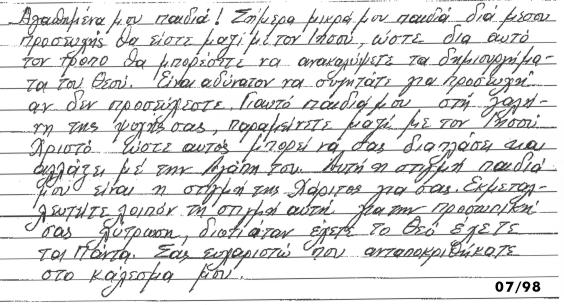 Αγαπημένα μου παιδιά! Σήμερα μικρά μου παιδιά διά μέσου
προσευχής θα είστε μαζί με τον Ιησού, ώστε δια αυτό
τον τρόπο θα μπορέσετε να ανακαλύψετε τα δημιουργήμα-
τα του Θεού. Είναι αδύνατον να συζητάτε για προσευχή
αν δεν προσεύχεστε. Γιαυτό παιδιά μου στη γαλή-
νη της ψυχής σας, παραμείνετε μαζί με τον Ιησού
Χριστό ώστε αυτός μπορεί να σας διαπλάσει και
αλλάξει με την Αγάπη του. Αυτή η στιγμή παιδιά
μου είναι η στιγμή της Χάριτος για σας. Εκμεταλ-
λευτείτε λοιπόν τη στιγμή αυτή για την προσωπική
σας λύτρωση, διότι όταν έχετε το Θεό έχετε
τα Πάντα. Σας ευχαριστώ που ανταποκριθήκατε
στο κάλεσμα μου.
07/98